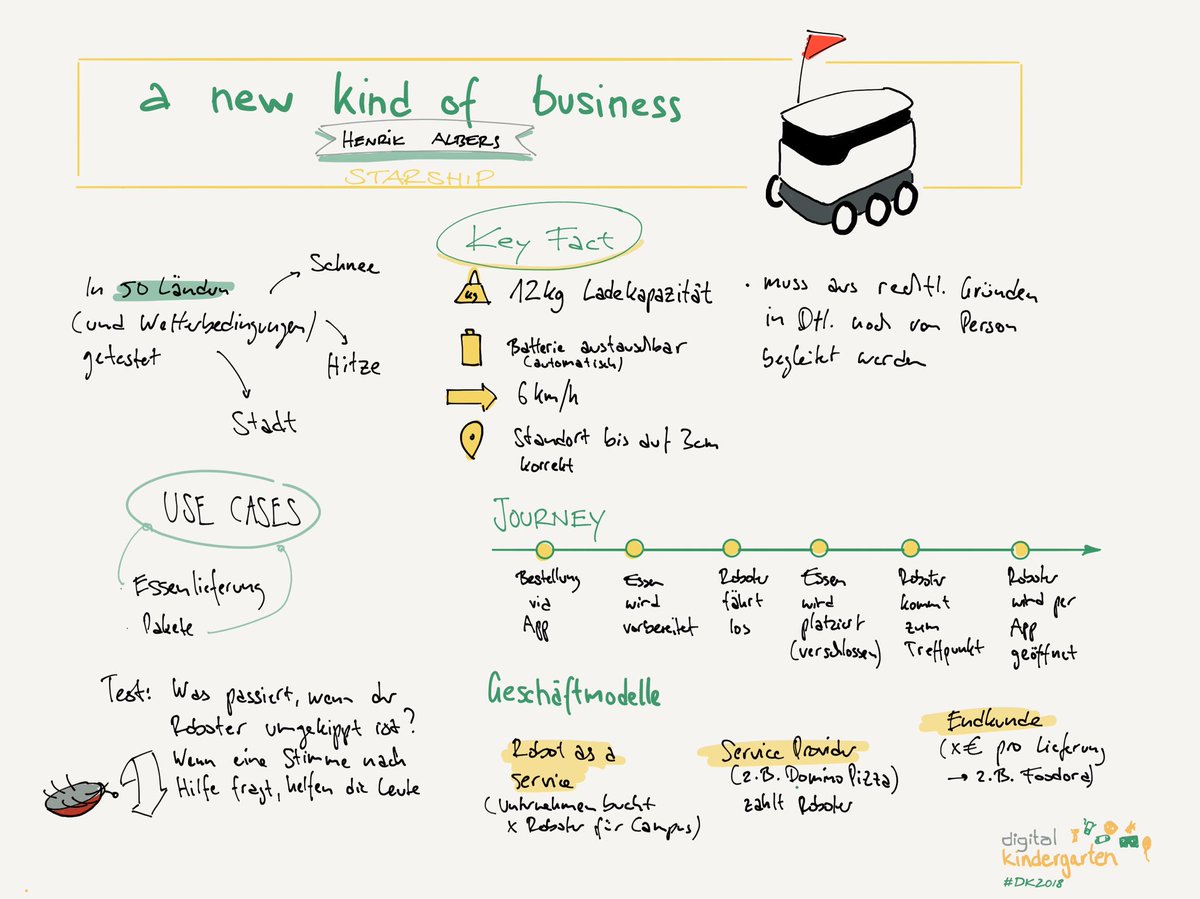 a new kind of business
HENRIK ALBERS
STARSHIP
In 50 Ländern
(und Wetterbedingungen)
getestet
Schnee
Hitze
Stadt
Key Fact
kg
12kg Ladekapazität
Batterie austauschbar
(automatisch)
6 km/h
Standort bis auf 3cm
korrekt
• muss aus rechtl. Gründen
in Dtl. noch von Person
begleitet werden
USE CASES
Essenlieferung
Pakete
JOURNEY
Bestellung
via
App
Essen
wird
vorbereitet
Roboter
fährt
los
Essen
wird
platziert
(verschlossen)
Roboter
kommt
zum
Treffpunkt
Roboter
wird per
App
geöffnet
Test: Was passiert, wenn der
Roboter umgekippt ist?
Wenn eine Stimme nach
Hilfe fragt, helfen die Leute
Geschäftmodelle
Robot as a
service
(Unternehmen bucht
x Roboter für Campus)
Service Provider
(z.B. Domino Pizza)
zahlt Roboter
Endkunde
(x€ pro Lieferung
→ z.B. Foodora)
digital
kindergarten
#DK2018